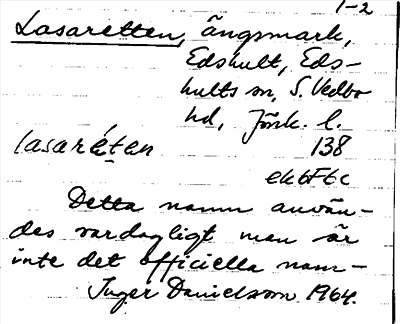 1-2
Lasaretten, ängsmark,
Edshult, Eds-
hults sn, S. Vedbo
hd, Jönk. l.
lasaréten 138
ek6F6c
Detta namn använ-
des vardagligt men är
inte det officiella nam-
Inger Danielsson 1964.